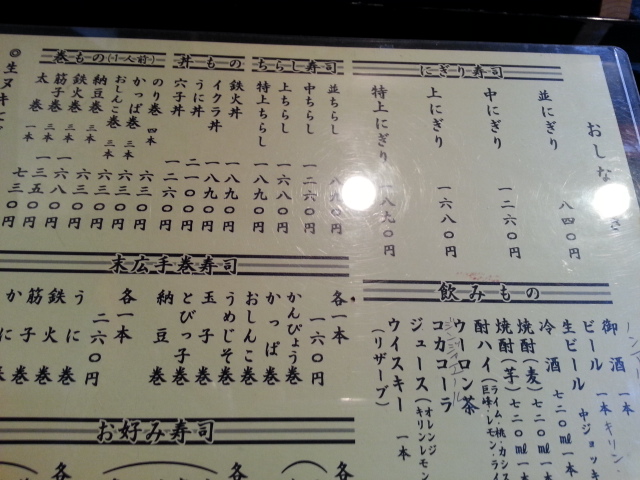 おしな
にぎり寿司
並にぎり 八四〇円
中にぎり 一二六〇円
上にぎり 一六八〇円
特上にぎり 一八九〇円
ちらし寿司
並ちらし
中ちらし 一二六〇円
上ちらし 一六八〇円
特上ちらし 一八九〇円
丼もの
鉄火丼 一八九〇円
イクラ丼 一八九〇円
うに丼 二一〇〇円
穴子丼 一二六〇円
巻もの(一人前)
のり巻 四本 六三〇円
かっぱ巻 三本 六三〇円
おしんこ巻 三本 六三〇円
納豆巻 三本 六三〇円
鉄火巻 三本 一六八〇円
筋子巻 一本 一三五〇円
太巻 一本 七三〇円
◎生ヌキ
末広手巻寿司
各一本 一六〇円
かんぴょう巻
かっぱ巻
おしんこ巻
うめじそ巻
玉子巻
とびっ子巻
納豆巻
各一本 二六〇円
うに巻
鉄火巻
筋子巻
かに巻
お好み寿司
各
各
飲みもの
御酒 一本
ビール 一本 キリン・
生ビール 中ジョッキ
冷酒 七二〇㎖ 一本
焼酎(麦) 七二〇㎖ 一本
焼酎(芋) 七二〇㎖ 一本
酎ハイ(ライム・桃・カシス 巨峰・レモン・ライ
ウーロン茶
コカコーラ
ジュース(オレンジ キリンレモン
ウイスキー 一本
(リザーブ)